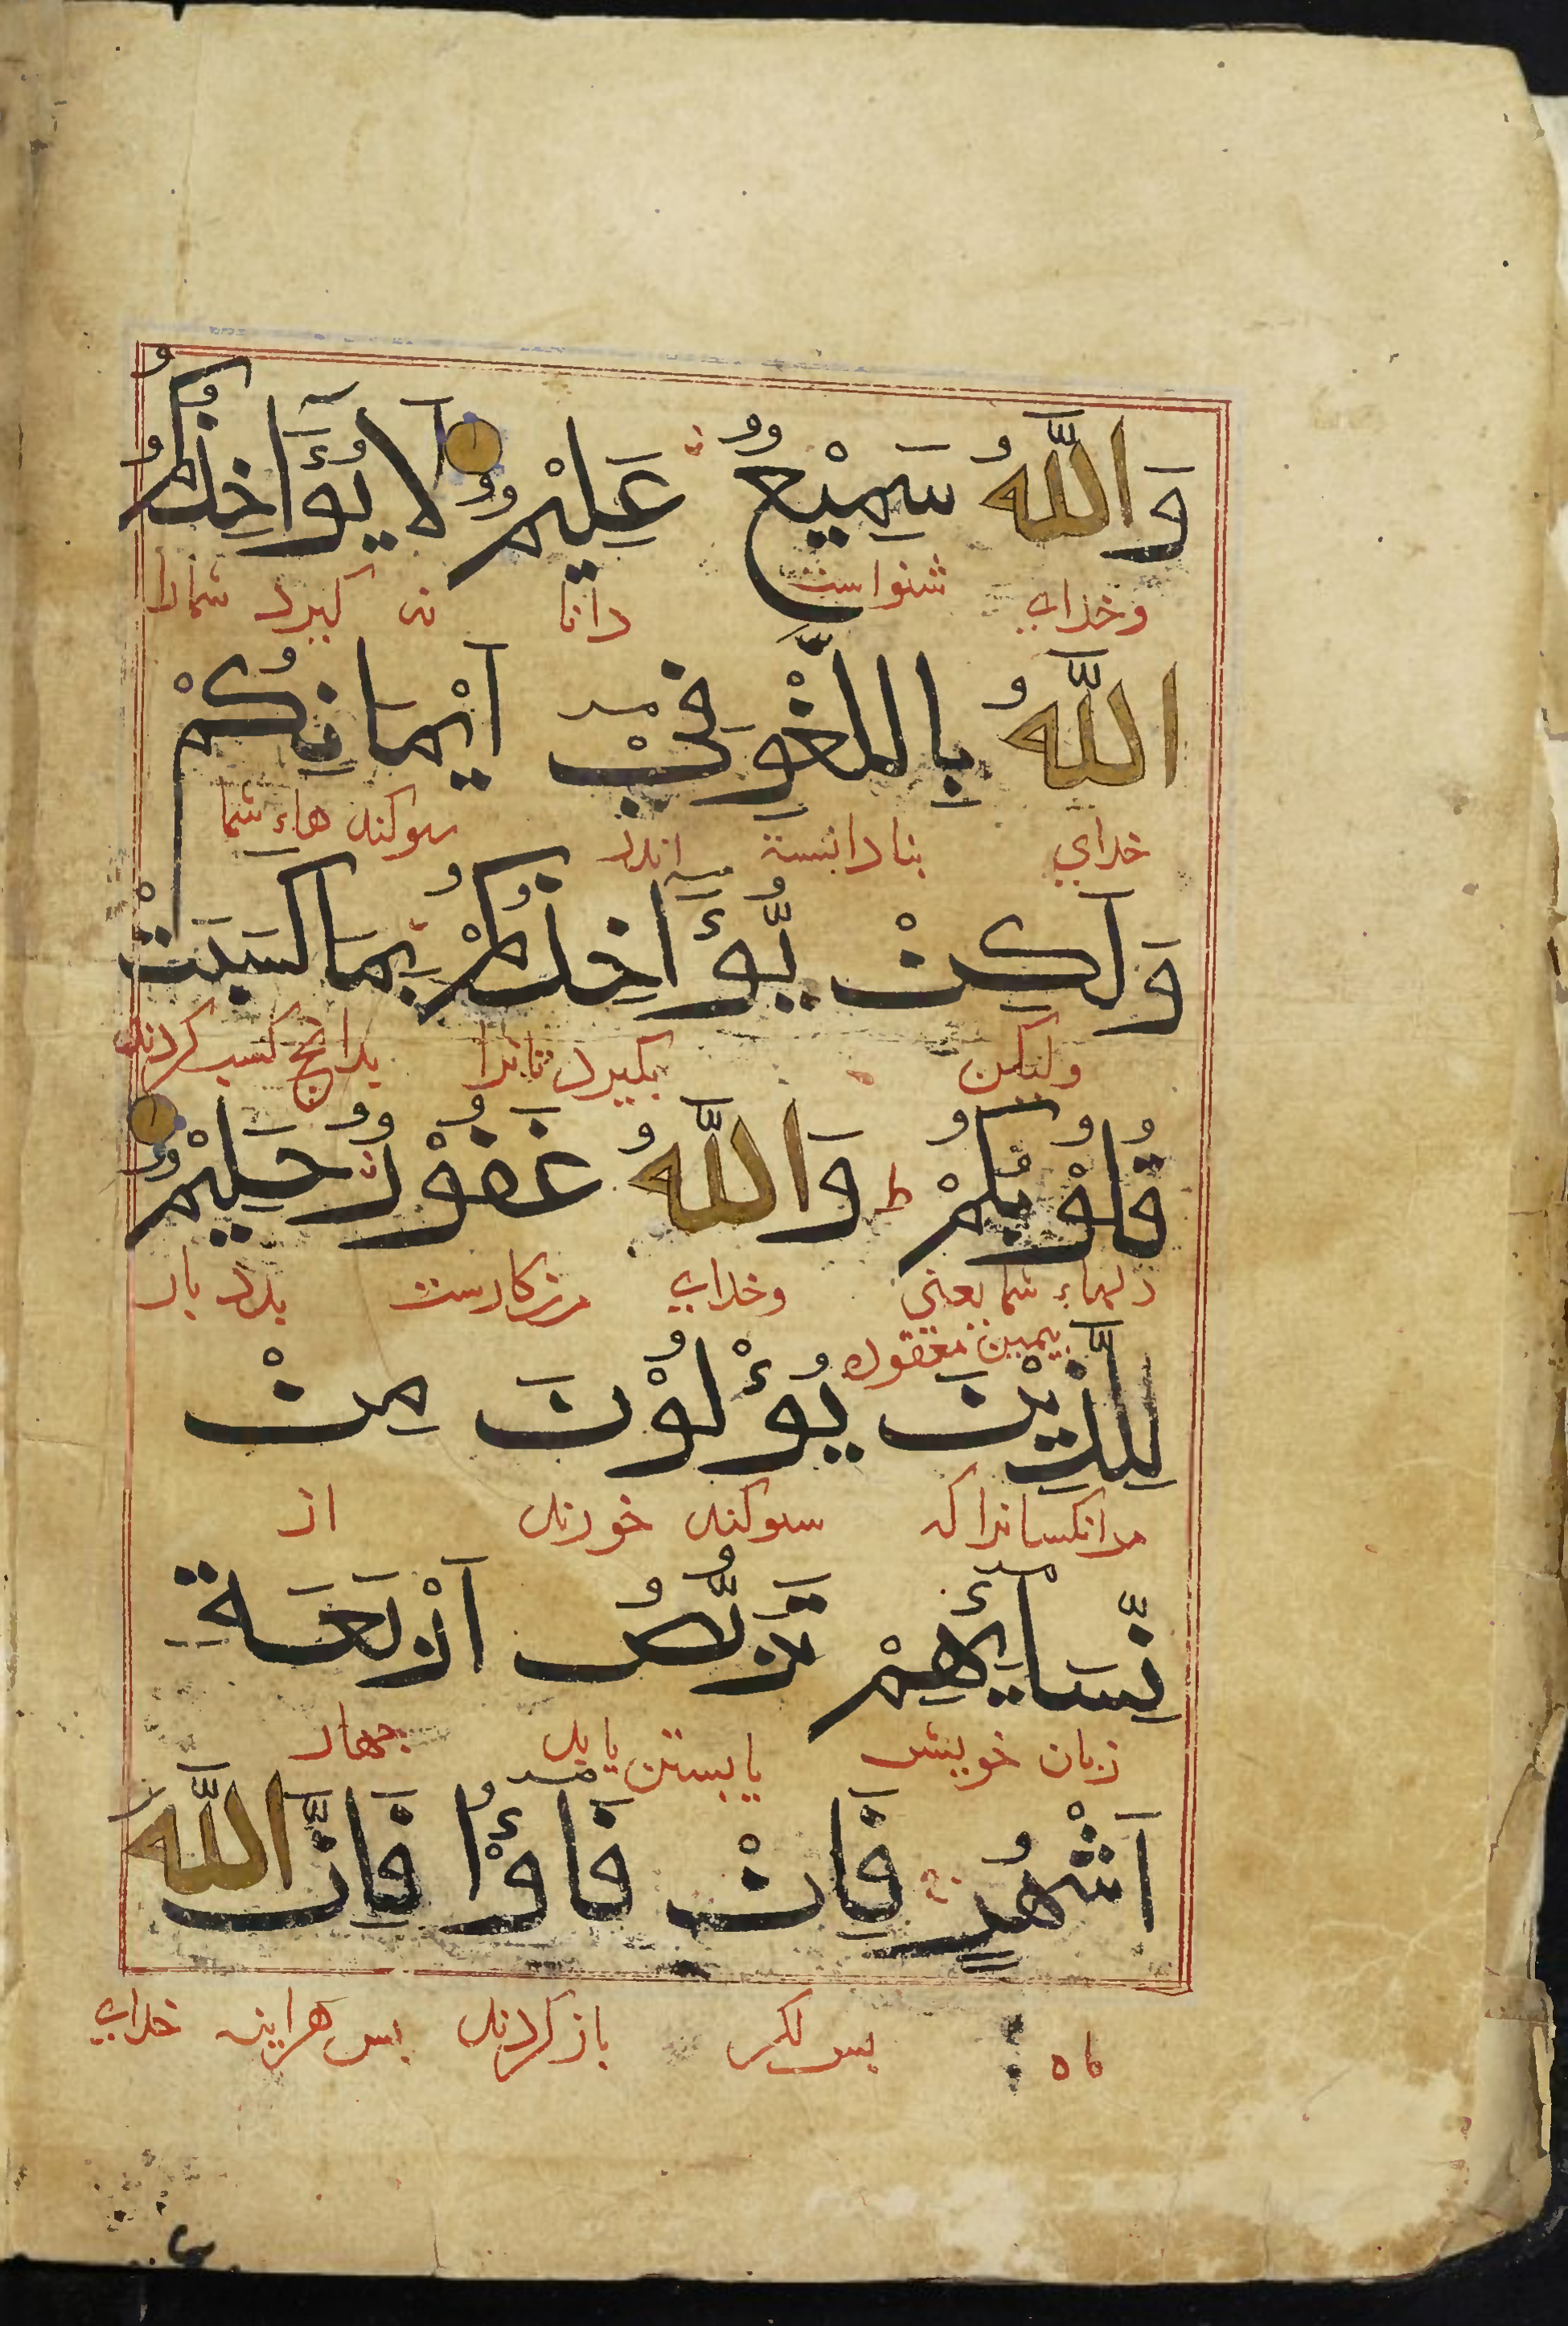 وَاللَّهُ سَمِيْعٌ عَلِيْمٌ لَا يُؤَاخِذُكُمُ
وخدای شنواست دانا نه کیرد شمارا
اللَّهُ بِاللَّغْوِ فِيْ اَيْمَانِكُمْ
خدای بنادانسته اندر سوکند هاء شما
وَلَكِنْ يُّؤَاخِذُكُمْ بِمَا كَسَبَتْ
ولیکن بکیرد شمارا بدانچ کسب کردند
قُلُوْبُكُمْ ط وَاللَّهُ غَفُوْرٌ حَلِيْمٌ
دلهاء شما یعنی وخدای بردبار
یمین معقوده
لِلَّذِيْنَ يُؤْلُوْنَ مِنْ
مرانکسانرا که سوکند خورند از
نِّسَآئِهِمْ تَرَبُّصُ اَرْبَعَةِ
زنان خویش چهار
اَشْهُرٍ فَاِنْ فَآؤُا فَاِنَّ اللَّهَ
ماه بس اکر باز کردند بس هراینه خدای